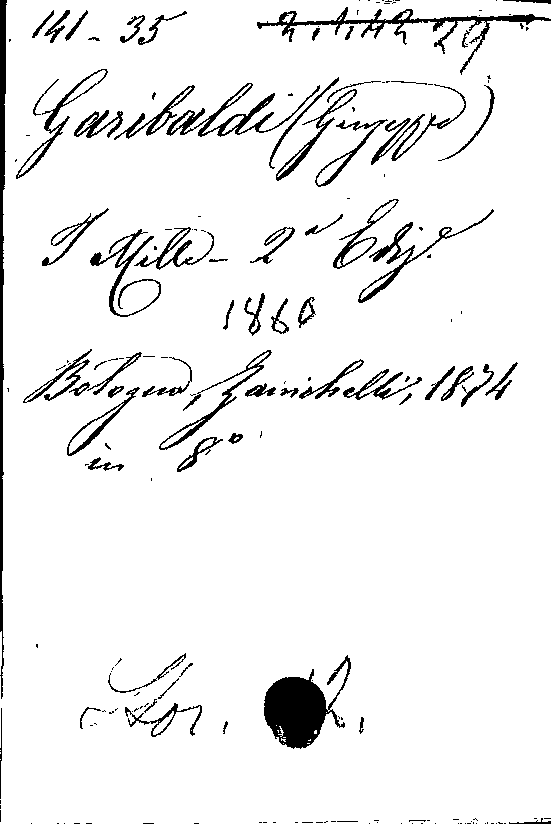 141 - 35 29
Garibaldi (Giuseppe)
I Mille - 2ª Ediz.e
1860
Bologna, Zanichelli, 1874
in 8º
Stor. 2.